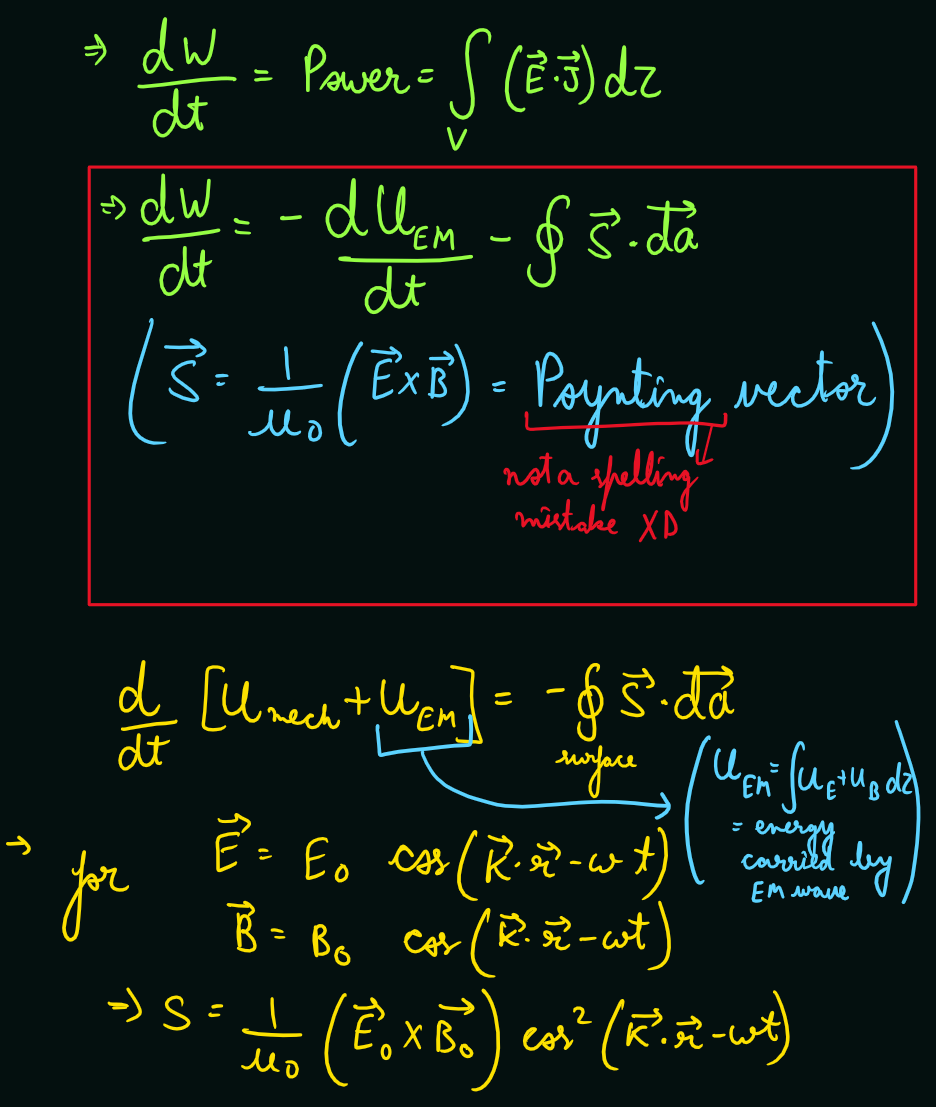 ⇒ dW/dt = Power = ∫_V (E⃗·J⃗) dτ
⇒ dW/dt = - dU_EM/dt - ∮ S⃗·da⃗
(S⃗ = 1/μ₀ (E⃗×B⃗) = Poynting vector)
not a spelling
mistake XD
d/dt [U_mech + U_EM] = -∮_surface S⃗·da⃗
(U_EM = ∫u_E+u_B dτ
= energy
carried by
EM wave)
→ for E⃗ = E₀ cos(K⃗·r⃗-ωt)
B⃗ = B₀ cos(K⃗·r⃗-ωt)
⇒ S = 1/μ₀ (E⃗₀ × B⃗₀) cos²(K⃗·r⃗-ωt)